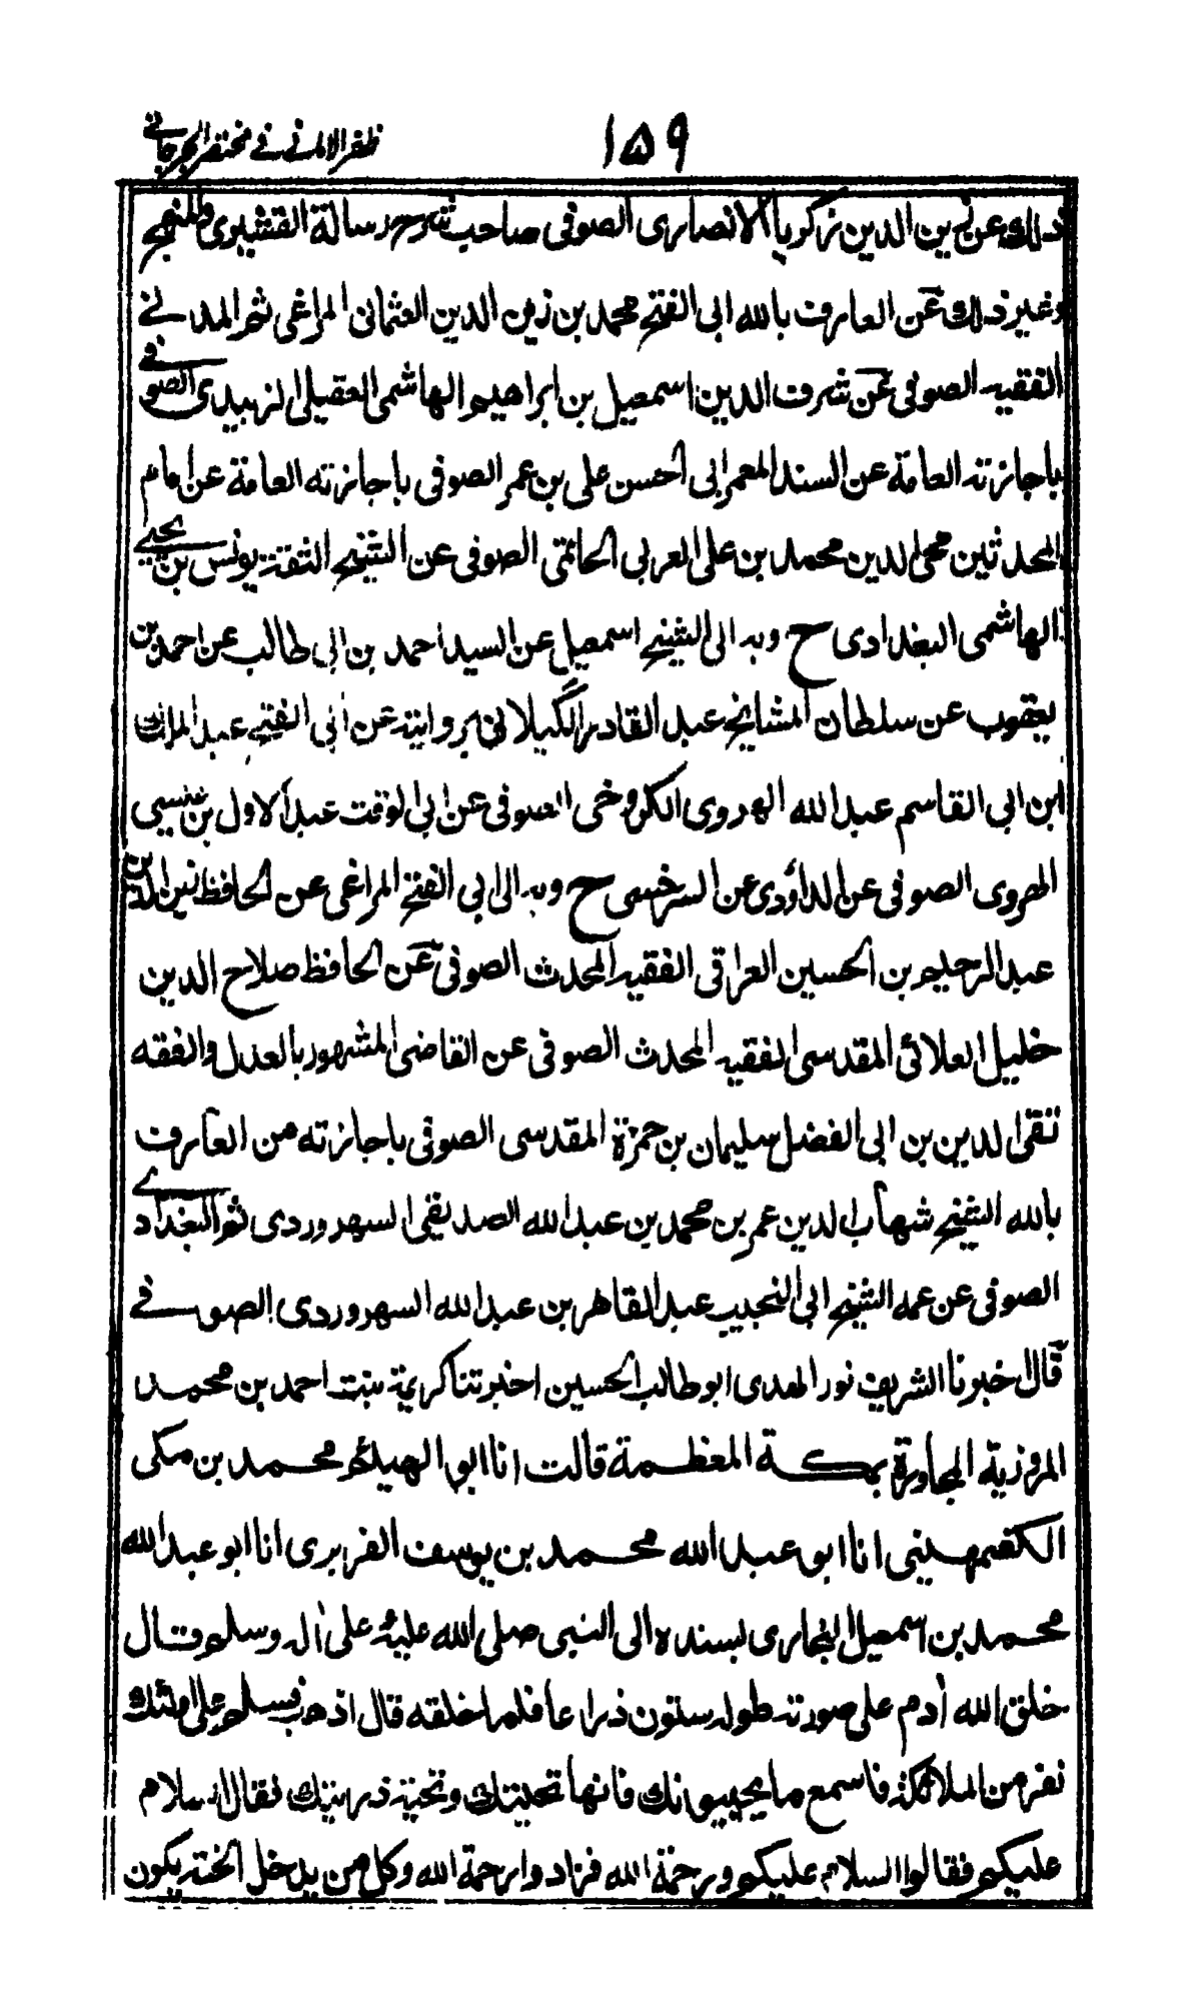 ظفر الامانی فی مختصر الجرجانی
۱۵۹
ذلك عن زين الدين زكريا الانصاری الصوفی صاحب شرح رسالة القشيری والمنهج
وغير ذلك عن العارف بالله ابی الفتح محمد بن زين الدين العثمانی المراغی ثم المدنی
الفقيه الصوفی عن شرف الدين اسمعيل بن ابراهيم الهاشمی العقيلی الزبيدی الصوفی
باجازته العامة عن السند المعمر ابی الحسن علی بن عمر الصوفی باجازته العامة عن امام
المحدثين محی الدين محمد بن علی العربی الحاتمی الصوفی عن الشيخ الثقة يونس بن يحيی
الهاشمی البغدادی ح وبه الی الشيخ اسمعيل عن السيد احمد بن ابی طالب عن احمد بن
يعقوب عن سلطان المشايخ عبد القادر الگيلانی بروايته عن ابی الفتح عبد الملك
ابن ابی القاسم عبد الله الهروی الكروخی الصوفی عن ابی الوقت عبد الاول بن عيسی
الهروی الصوفی عن الداؤدی عن السرخسی ح وبه الی ابی الفتح المراغی عن الحافظ زين الدين
عبد الرحيم بن الحسين العراقی الفقيه المحدث الصوفی عن الحافظ صلاح الدين
خليل العلائی المقدسی الفقيه المحدث الصوفی عن القاضی المشهور بالعدل والفقه
تقی الدين بن ابی الفضل سليمان بن حمزة المقدسی الصوفی باجازته من العارف
بالله الشيخ شهاب الدين عمر بن محمد بن عبد الله الصديقی السهروردی ثم البغدادی
الصوفی عن عمه الشيخ ابی النجيب عبد القاهر بن عبد الله السهروردی الصوفی
قال اخبرنا الشريف نور الهدی ابو طالب الحسين اخبرتنا كريمة بنت احمد بن محمد
المروزية المجاورة بمكة المعظمة قالت انا ابو الهيثم محمد بن مكی
الكشميهنی انا ابو عبد الله محمد بن يوسف الفربری انا ابو عبد الله
محمد بن اسمعيل البخاری بسنده الی النبی صلی الله عليه وعلی اله وسلم قال
خلق الله أدم علی صورته طوله ستون ذراعا فلما خلقه قال اذهب فسلم علی اولئك
نفر من الملائكة فاسمع ما يحيونك فانها تحيتك وتحية ذريتك فقال السلام
عليكم فقالوا السلام عليكم ورحمة الله فزادوا رحمة الله وكل من يدخل الجنة يكون